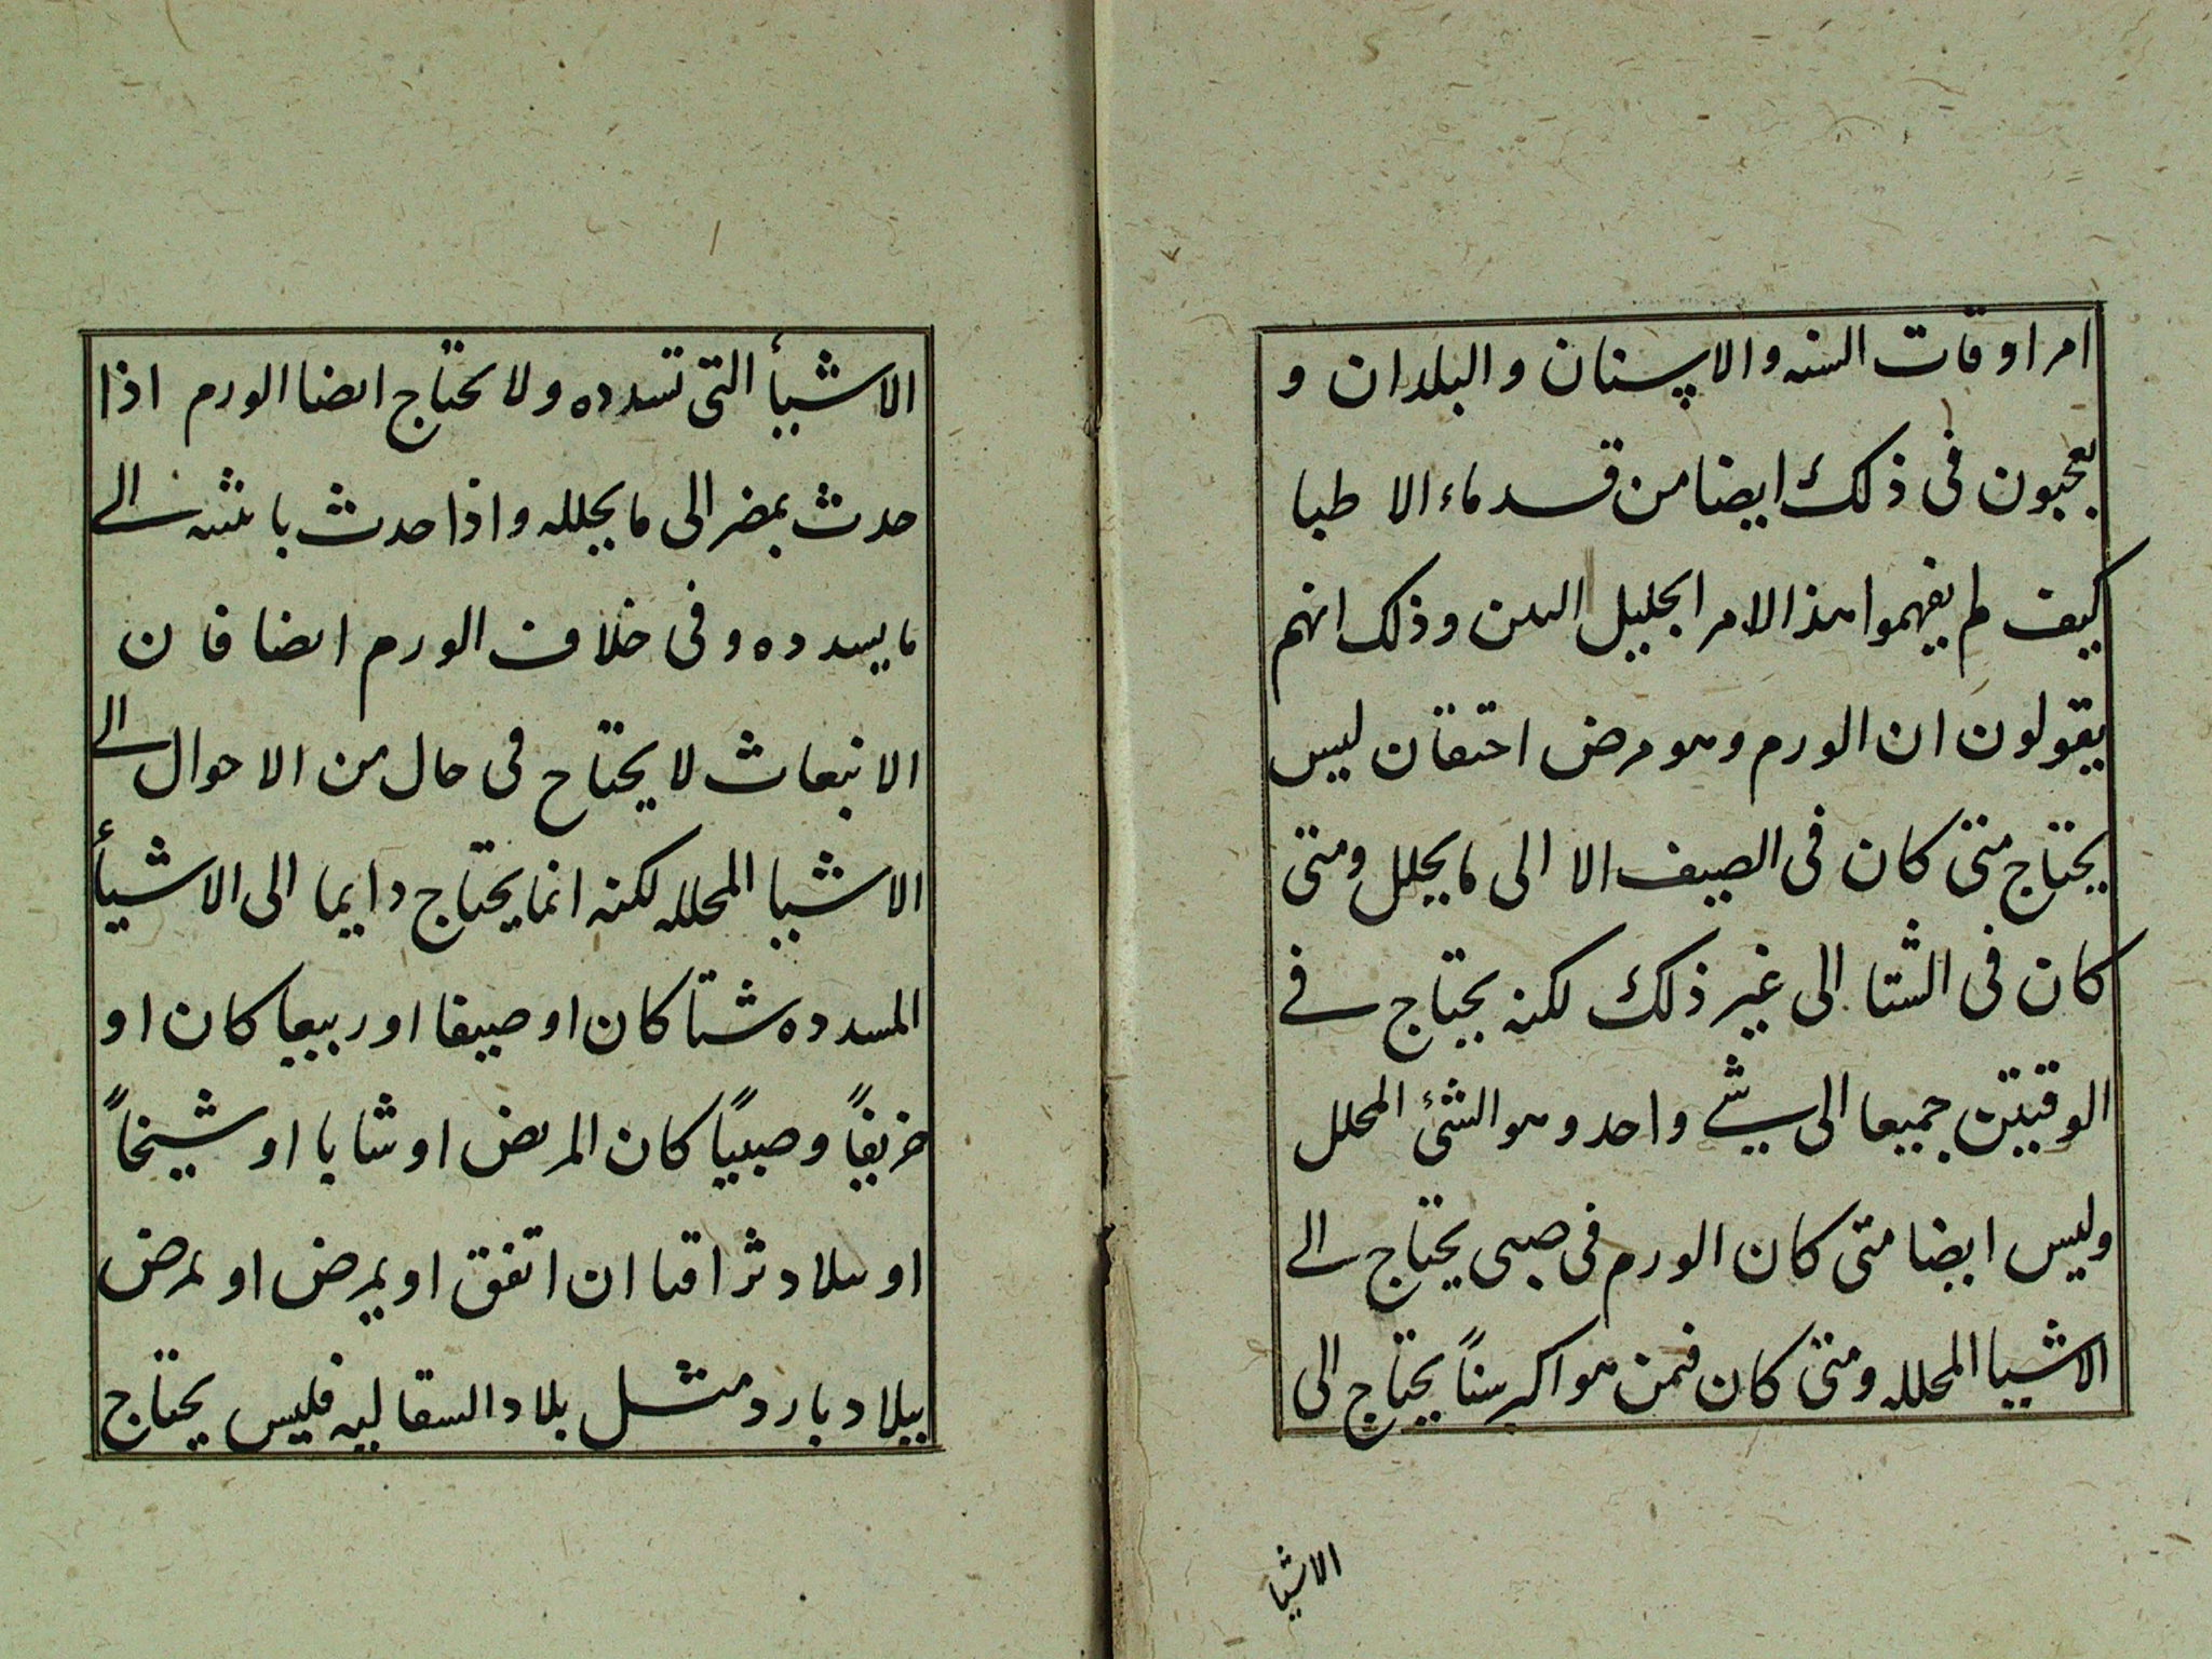 امر اوقات السنه والاسنان والبلدان و
يعجبون فى ذلك ايضا من قدماء الاطبا
كيف لم يفهموا هذا الامر الجليل البين وذلك انهم
يقولون ان الورم وهو مرض احتقان ليس
يحتاج متى كان فى الصيف الا الى ما يحلل ومتى
كان فى الشتا الى غير ذلك لكنه يحتاج فى
الوقتين جميعا الى شى واحد وهو الشئ المحلل
وليس ايضا متى كان الورم فى صبى يحتاج الى
الاشيا المحلله ومتى كان فمن هو اكبر سنًا يحتاج الى
الاشيا
الاشيأ التى تسدده ولا يحتاج ايضا الورم اذا
حدث بمضر الى ما يحلله واذا حدث الى
ما يسدده وفى خلاف الورم ايضا فان
الانبعاث لا يحتاج فى حال من الاحوال الى
الاشيا المحلله لكنه انما يحتاج دايما الى الاشيأ
المسدده شتا كان او صيفا او ربيعا كان او
خريفًا وصبيًا كان المريض او شابا او شيخاً
او ببلاد ثراقا ان اتفق او يمرض او لمرض
ببلاد بارد مثل بلاد السقالبه فليس يحتاج